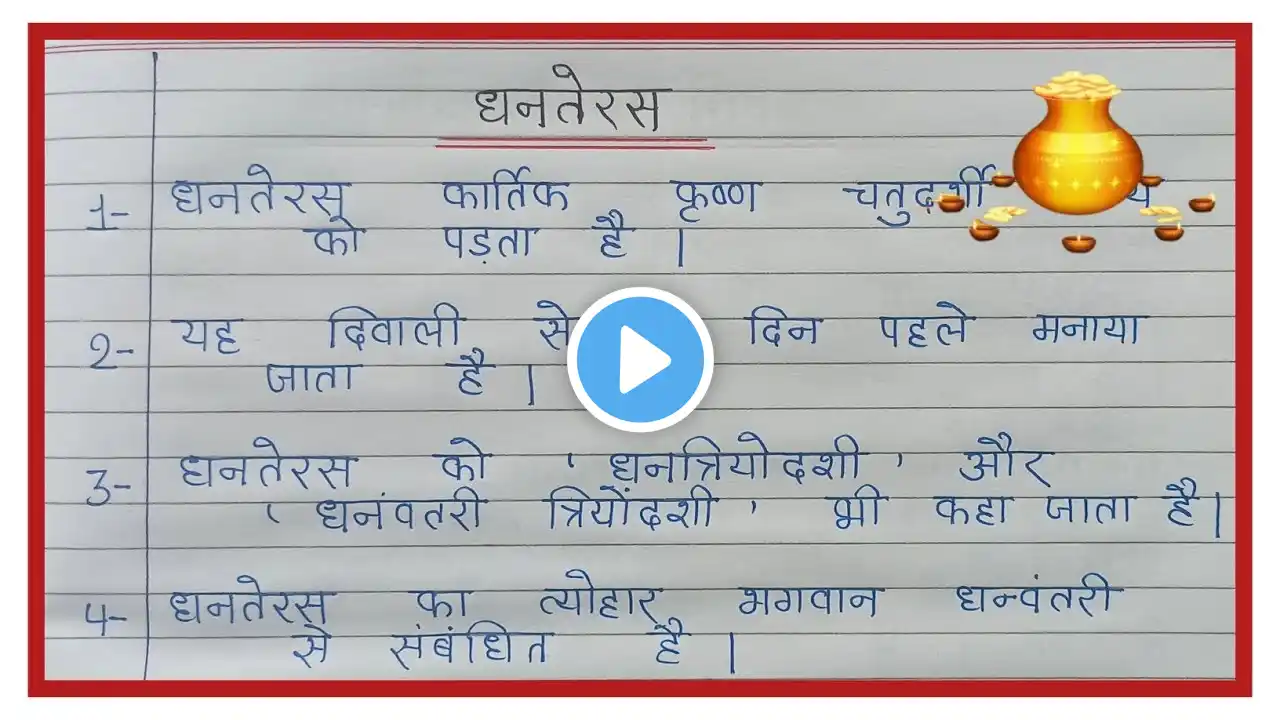 धनतेरस
1- धनतेरस कार्तिक कृष्ण चतुदर्शी
को पड़ता है ।
2- यह दिवाली से दिन पहले मनाया
जाता है ।
3- धनतेरस को ' धनत्रियोदशी ' और
' धनंवतरी त्रियोंदशी ' भी कहा जाता है ।
4- धनतेरस का त्योहार भगवान धन्वंतरी
से संबंधित है ।